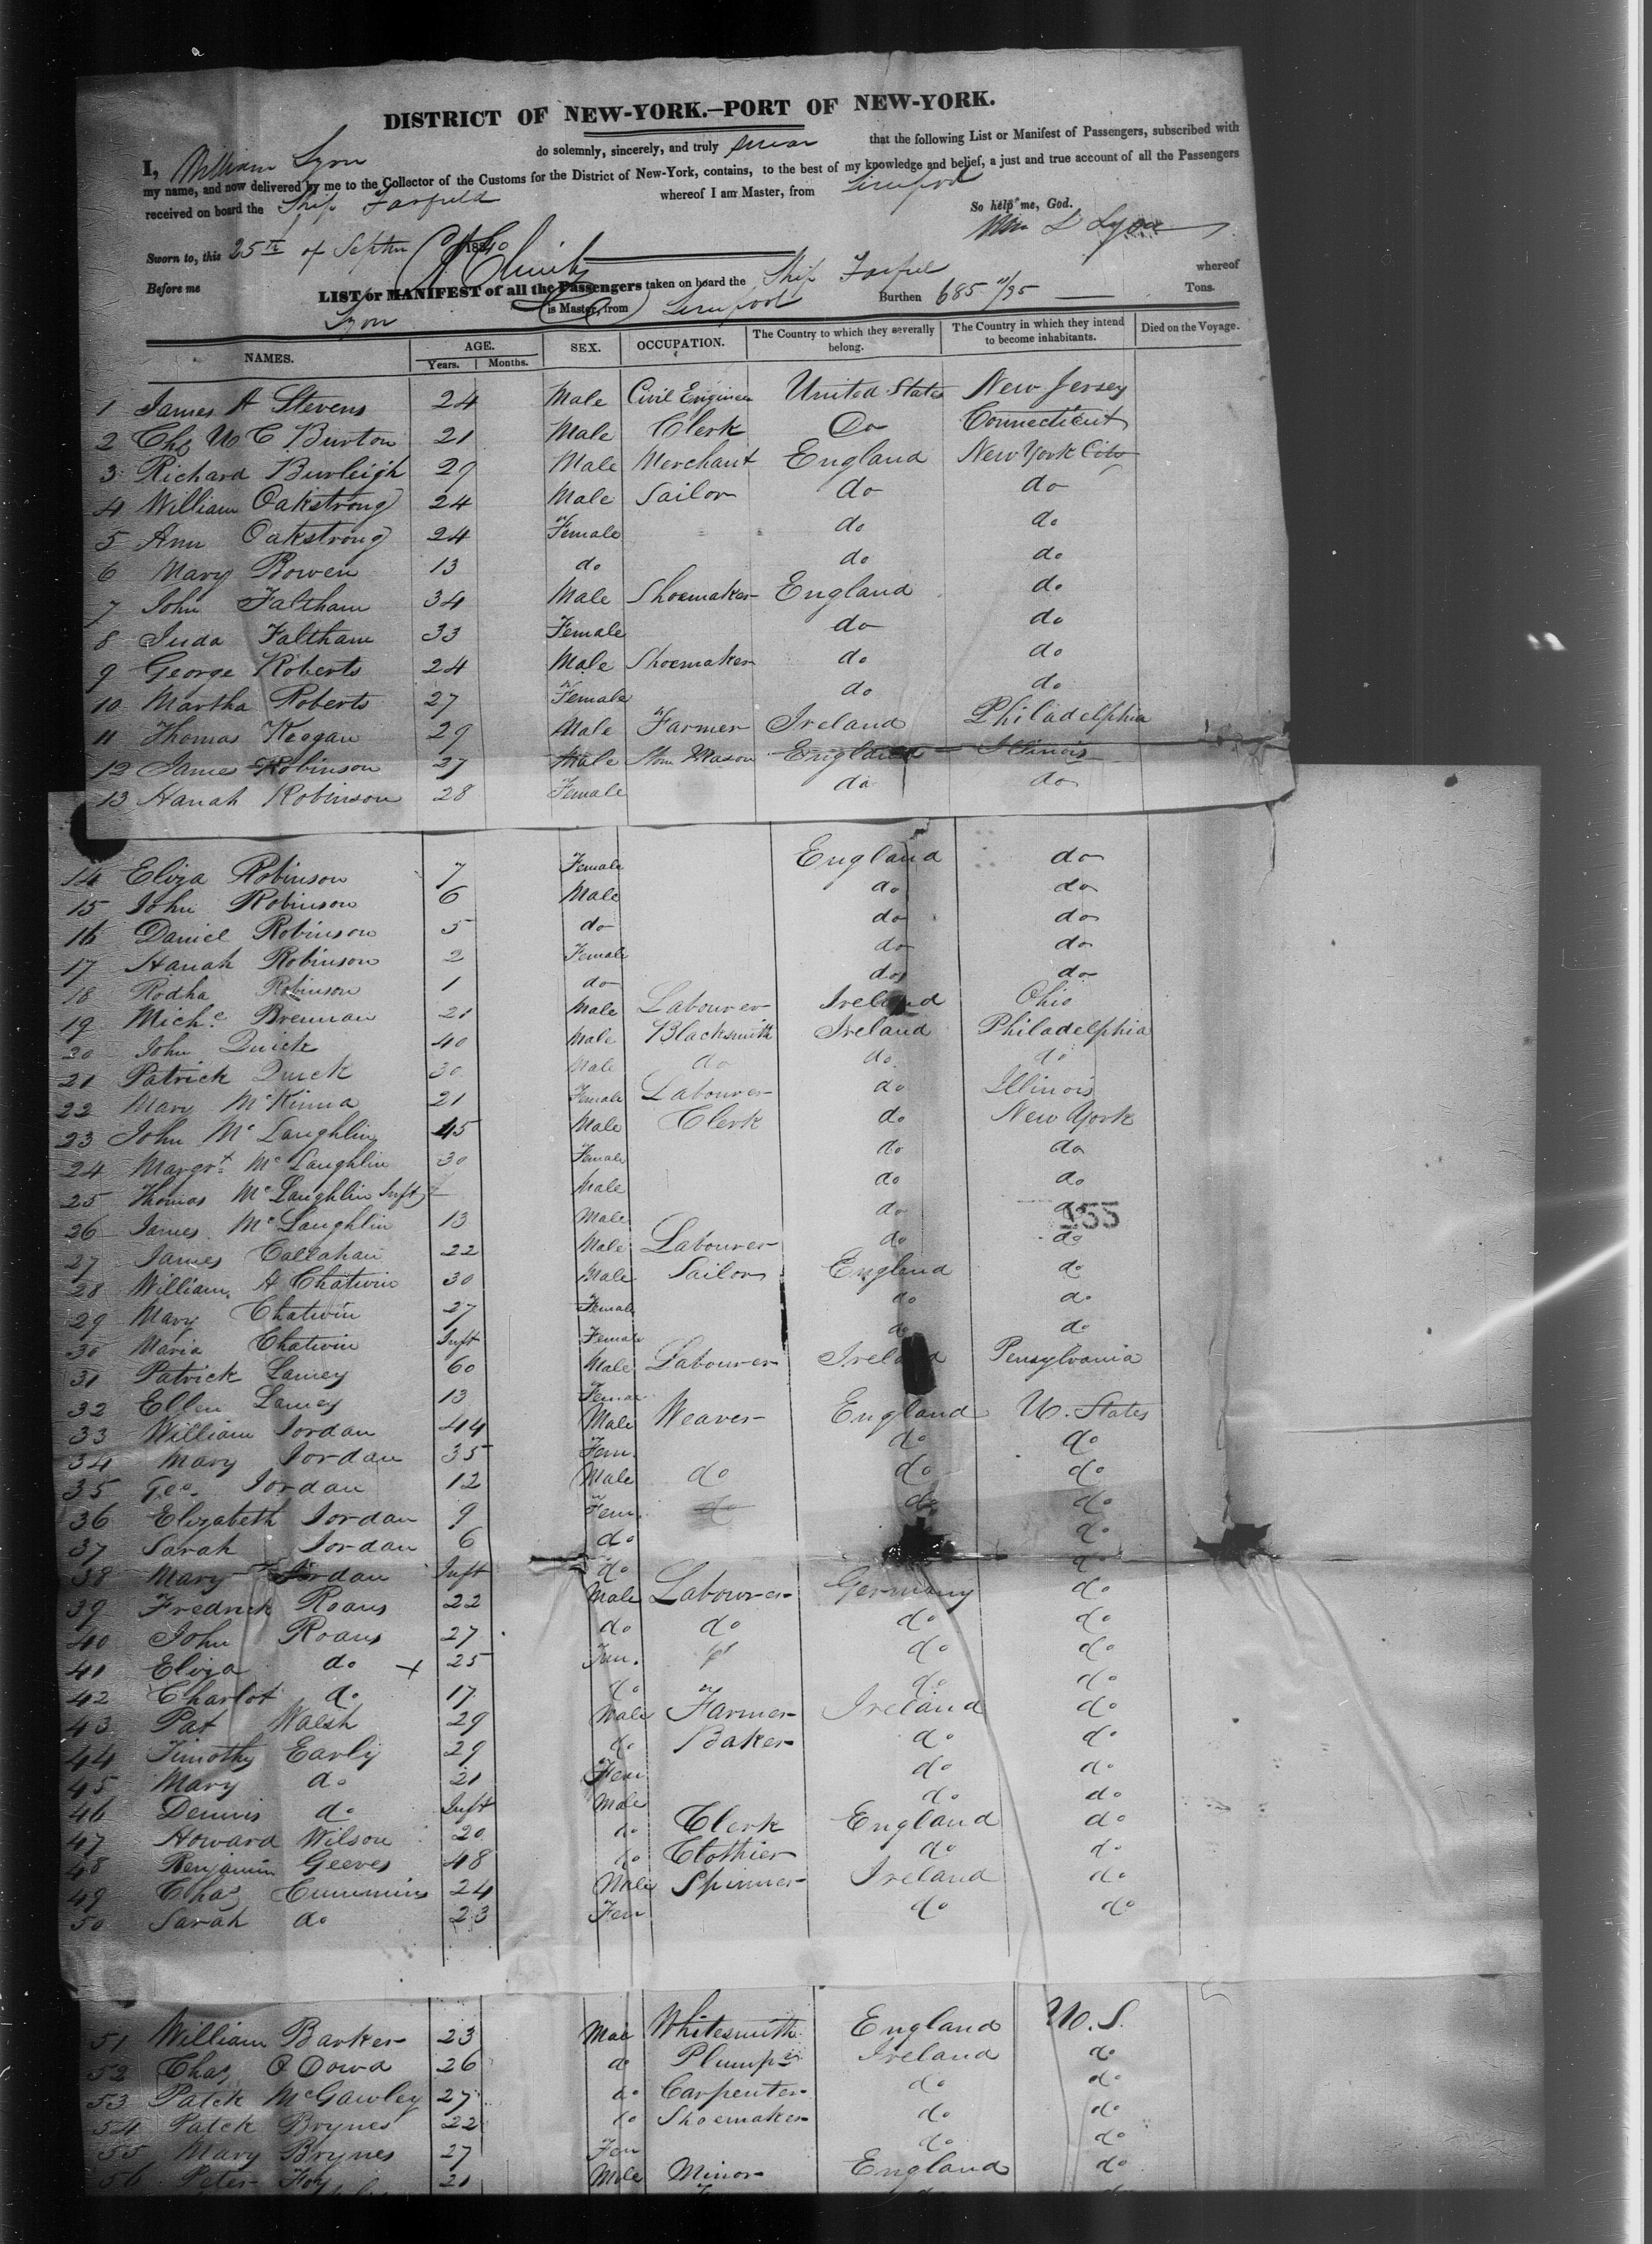 DISTRICT OF NEW-YORK.—PORT OF NEW-YORK.
I, William Lyon do solemnly, sincerely, and truly swear that the following List or Manifest of Passengers, subscribed with
my name, and now delivered by me to the Collector of the Customs for the District of New-York, contains, to the best of my knowledge and belief, a just and true account of all the Passengers
received on board the Ship Fairfield whereof I am Master, from Liverpool
So help me, God.
Sworn to, this 25th of Septr 1840 Wm L Lyon
Before me
LIST or MANIFEST of all the Passengers taken on board the Ship whereof
Lyon is Master, from Liverpool Burthen 685 /95 Tons.
NAMES. AGE. SEX. OCCUPATION. The Country to which they severally belong. The Country in which they intend to become inhabitants. Died on the Voyage.
Years. Months.
1 James A Stevens 24 Male Civil Engineer United States New Jersey
2 Chs W C Burton 21 Male Clerk Do Connecticut
3 Richard Burleigh 27 Male Merchant England New York City
4 William Oakstrong 24 Male Sailor do do
5 Ann Oakstrong 24 Female do do
6 Mary Bowen 13 do do do
7 John Faltham 34 Male Shoemaker England do
8 Juda Faltham 33 Female do do
9 George Roberts 24 Male Shoemaker do do
10 Martha Roberts 27 Female do do
11 Thomas Keegan 29 Male Farmer Ireland Philadelphia
12 James Robinson 27 Male Stone Mason England Illinois
13 Hanah Robinson 28 Female do do
14 Eliza Robinson 7 Female England do
15 John Robinson 6 Male do do
16 Daniel Robinson 5 do do do
17 Hanah Robinson 2 Female do do
18 Rodha Robinson 1 do do do
19 Michl Brennan 21 Male Labourer Ireland Ohio
20 John Quick 40 Male Blacksmith Ireland Philadelphia
21 Patrick Quick 30 Male do do do
22 Mary McKinna 21 Female Labourer do Illinois
23 John McLaughlin 45 Male Clerk do New York
24 Margrt McLaughlin 30 Female do do
25 Thomas McLaughlin Inft Male do do
26 James McLaughlin 13 Male do do
155
27 James Callahan 22 Male Labourer do do
28 William A Chatwin 30 Male Sailor England do
29 Mary Chatwin 27 Female do do
30 Maria Chatwin Inft Female do do
31 Patrick Lamey 60 Male Labourer Ireland Pensylvania
32 Ellen Lamey 13 Female
33 William Jordan 44 Male Weaver England U. States
34 Mary Jordan 35 Fem. do do
35 Geo. Jordan 12 Male do do do
36 Elizabeth Jordan 9 Fem. do do do
37 Sarah Jordan 6 do do
38 Mary Jordan Inft do do
39 Fredrick Roans 22 Male Labourer Germany do
40 John Roans 27 do do do do
41 Eliza do + 25 Fem. do do
42 Charlot do 17 do do do
43 Pat Walsh 29 Male Farmer Ireland do
44 Timothy Early 29 do Baker do do
45 Mary do 21 Fem do do
46 Dennis do Inft Male do do
47 Howard Wilson 20 do Clerk England do
48 Benjamin Geeves 48 do Clothier do do
49 Chas Cummins 24 Male Spinner Ireland do
50 Sarah do 23 Fem do do
51 William Barker 23 Male Whitesmith England U.S.
52 Chas O Dowd 26 do Ireland do
53 Patck McGawley 27 do Carpenter do do
54 Patck Brynes 22 do Shoemaker do do
55 Mary Brynes 27 Fem do do
56 Peter Foy 21 Male Minor England do